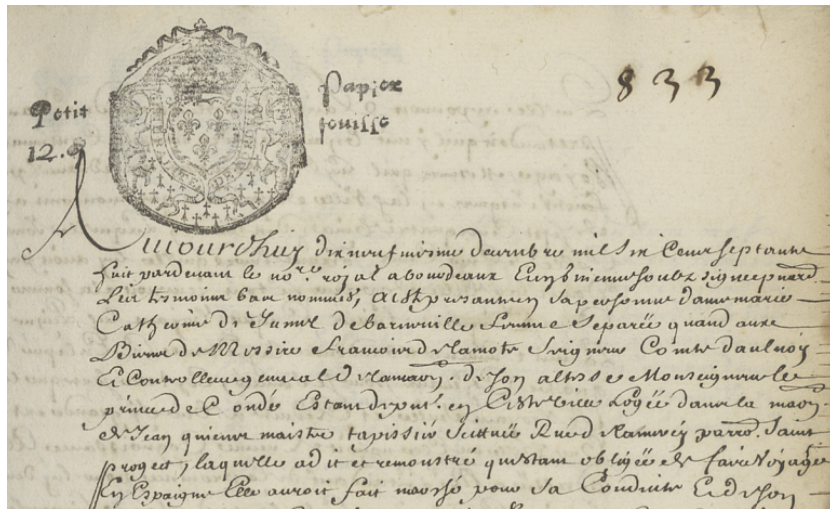 Petit
12.
Papier
feuille
833
Aujourdhuy dixneufviesme decembre mil six Cens septante
huit pardevant le no.re royal a bourdeaux Et en guienne soubz signe
les tesmoins bas nommés, A esté presante en sa personne dame marie
Catherine de Jumel de barneville femme Separée quand aux
Biens de Messire francois de lamote Seigneur Comte daulnoy
Et Controlleur general de la maon. de son altesse Monseigneur le
prince de Condé Estant de put. en Cette ville Logée dans la maon
de Jean maistre tapissié Scittuée Rue parro. Saint
proyect, laquelle a dit et remonstré questant obligée de faire Voyage
En Espaigne Elle auroit fait marché pour sa Conduite Et de son